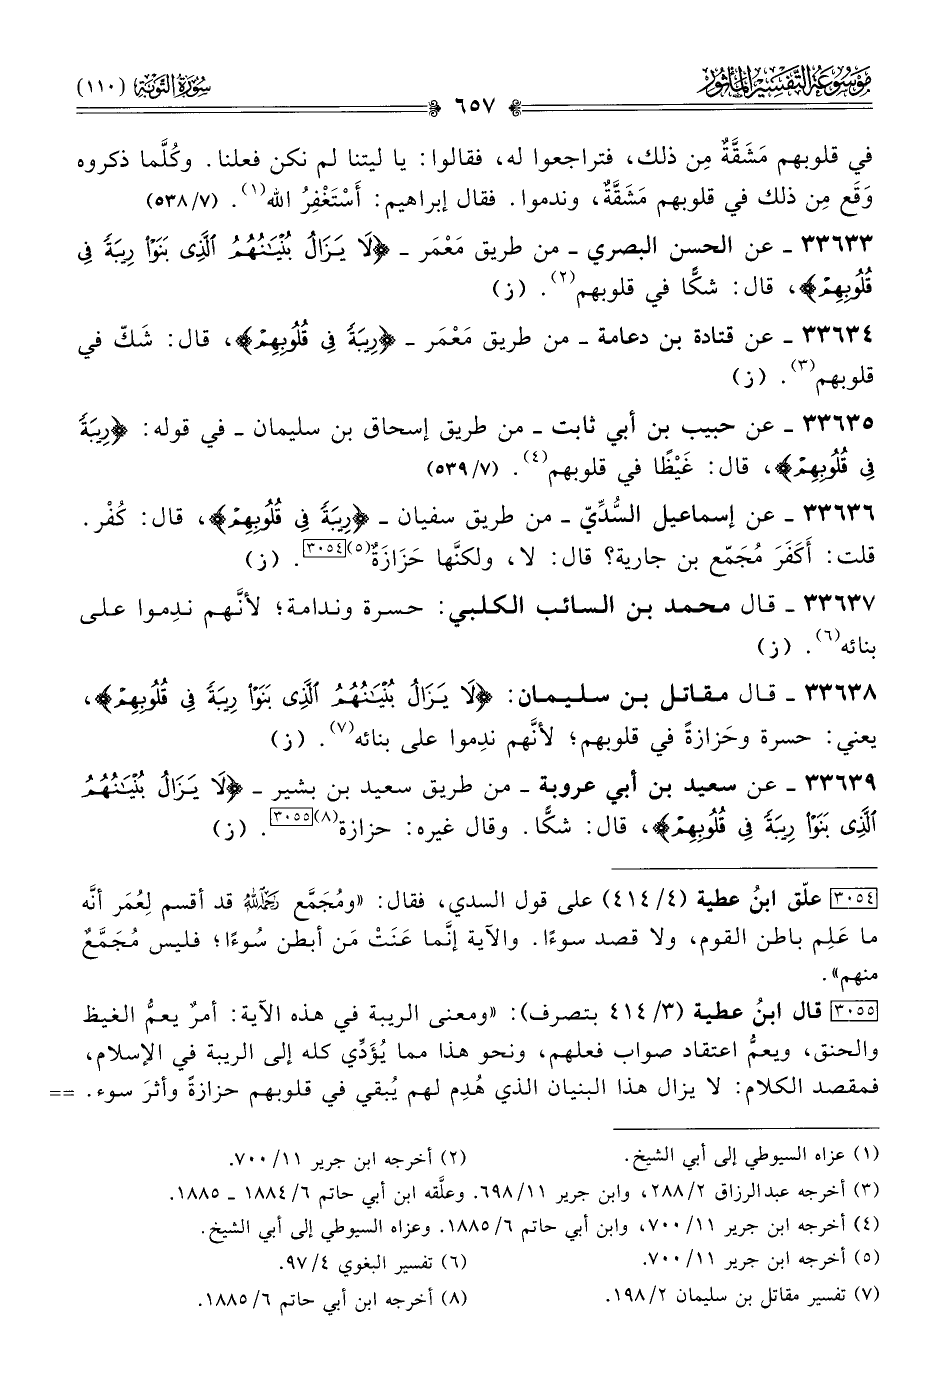 مَوْسُوعَة التَّفْسِير المَأْثُور
سُورَةُ التَّوْبَة (١١٠)
٦٥٧
في قلوبهم مَشَقَّةٌ مِن ذلك، فتراجعوا له، فقالوا: يا ليتنا لم نكن فعلنا. وكُلَّما ذكروه
وَقَع مِن ذلك في قلوبهم مَشَقَّةٌ، وندموا. فقال إبراهيم: أَسْتَغْفِرُ الله(١). (٧/ ٥٣٨)
٣٣٦٣٣ ـ عن الحسن البصري ـ من طريق مَعْمَر ـ ﴿لَا يَزَالُ بُنْيَـٰنُهُمُ ٱلَّذِى بَنَوْاْ رِيبَةً فِى
قُلُوبِهِمْ﴾، قال: شكًّا في قلوبهم(٢). (ز)
٣٣٦٣٤ ـ عن قتادة بن دعامة ـ من طريق مَعْمَر ـ ﴿رِيبَةً فِى قُلُوبِهِمْ﴾، قال: شَكّ في
قلوبهم(٣). (ز)
٣٣٦٣٥ ـ عن حبيب بن أبي ثابت ـ من طريق إسحاق بن سليمان ـ في قوله: ﴿رِيبَةً
فِى قُلُوبِهِمْ﴾، قال: غَيْظًا في قلوبهم(٤). (٧/ ٥٣٩)
٣٣٦٣٦ ـ عن إسماعيل السُّدِّيّ ـ من طريق سفيان ـ ﴿رِيبَةً فِى قُلُوبِهِمْ﴾، قال: كُفْر.
قلت: أَكَفَرَ مُجَمّع بن جارية؟ قال: لا، ولكنَّها حَزَازَةٌ(٥)[٣٠٥٤]. (ز)
٣٣٦٣٧ ـ قال محمد بن السائب الكلبي: حسرة وندامة؛ لأنَّهم ندِموا على
بنائه(٦). (ز)
٣٣٦٣٨ ـ قال مقاتل بن سليمان: ﴿لَا يَزَالُ بُنْيَـٰنُهُمُ ٱلَّذِى بَنَوْاْ رِيبَةً فِى قُلُوبِهِمْ﴾،
يعني: حسرة وحَزازةً في قلوبهم؛ لأنَّهم ندِموا على بنائه(٧). (ز)
٣٣٦٣٩ ـ عن سعيد بن أبي عروبة ـ من طريق سعيد بن بشير ـ ﴿لَا يَزَالُ بُنْيَـٰنُهُمُ
ٱلَّذِى بَنَوْاْ رِيبَةً فِى قُلُوبِهِمْ﴾، قال: شكًّا. وقال غيره: حزازة(٨)[٣٠٥٥]. (ز)
[٣٠٥٤] علّق ابنُ عطية (٤/ ٤١٤) على قول السدي، فقال: «ومُجَمَّع رَحِمَهُ اللَّهُ قد أقسم لِعُمَر أنَّه
ما عَلِم باطن القوم، ولا قصد سوءًا. والآية إنَّما عَنَتْ مَن أبطن سُوءًا؛ فليس مُجَمَّعٌ
منهم».
[٣٠٥٥] قال ابنُ عطية (٣/ ٤١٤ بتصرف): «ومعنى الريبة في هذه الآية: أمرٌ يعمُّ الغيظ
والحنق، ويعمُّ اعتقاد صواب فعلهم، ونحو هذا مما يُؤَدِّي كله إلى الريبة في الإسلام،
فمقصد الكلام: لا يزال هذا البنيان الذي هُدِم لهم يُبقي في قلوبهم حزازةً وأثرَ سوء. ==
(١) عزاه السيوطي إلى أبي الشيخ.
(٢) أخرجه ابن جرير ١١/ ٧٠٠.
(٣) أخرجه عبدالرزاق ٢/ ٢٨٨، وابن جرير ١١/ ٦٩٨. وعلَّقه ابن أبي حاتم ٦/ ١٨٨٤ ـ ١٨٨٥.
(٤) أخرجه ابن جرير ١١/ ٧٠٠، وابن أبي حاتم ٦/ ١٨٨٥. وعزاه السيوطي إلى أبي الشيخ.
(٥) أخرجه ابن جرير ١١/ ٧٠٠.
(٦) تفسير البغوي ٤/ ٩٧.
(٧) تفسير مقاتل بن سليمان ٢/ ١٩٨.
(٨) أخرجه ابن أبي حاتم ٦/ ١٨٨٥.